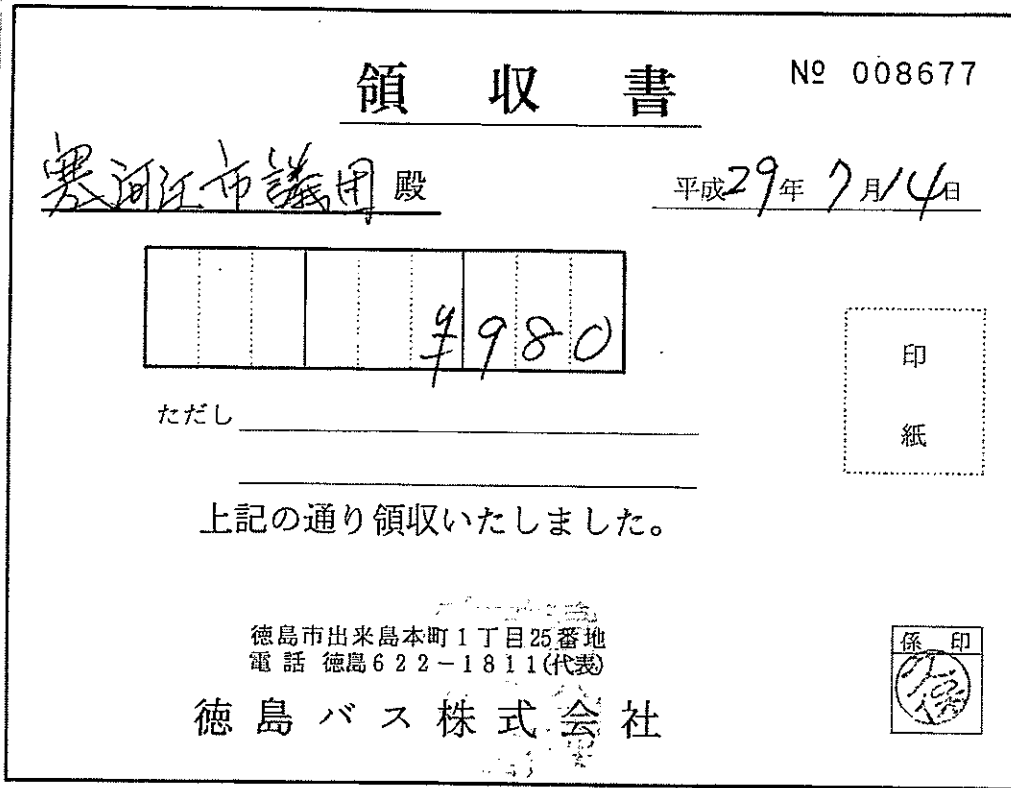 領収書
№ 008677
寒河江市議団 殿
平成29年 7月14日
¥980
ただし
印
紙
上記の通り領収いたしました。
徳島市出来島本町1丁目25番地
電話 徳島622-1811(代表)
徳島バス株式会社
係印